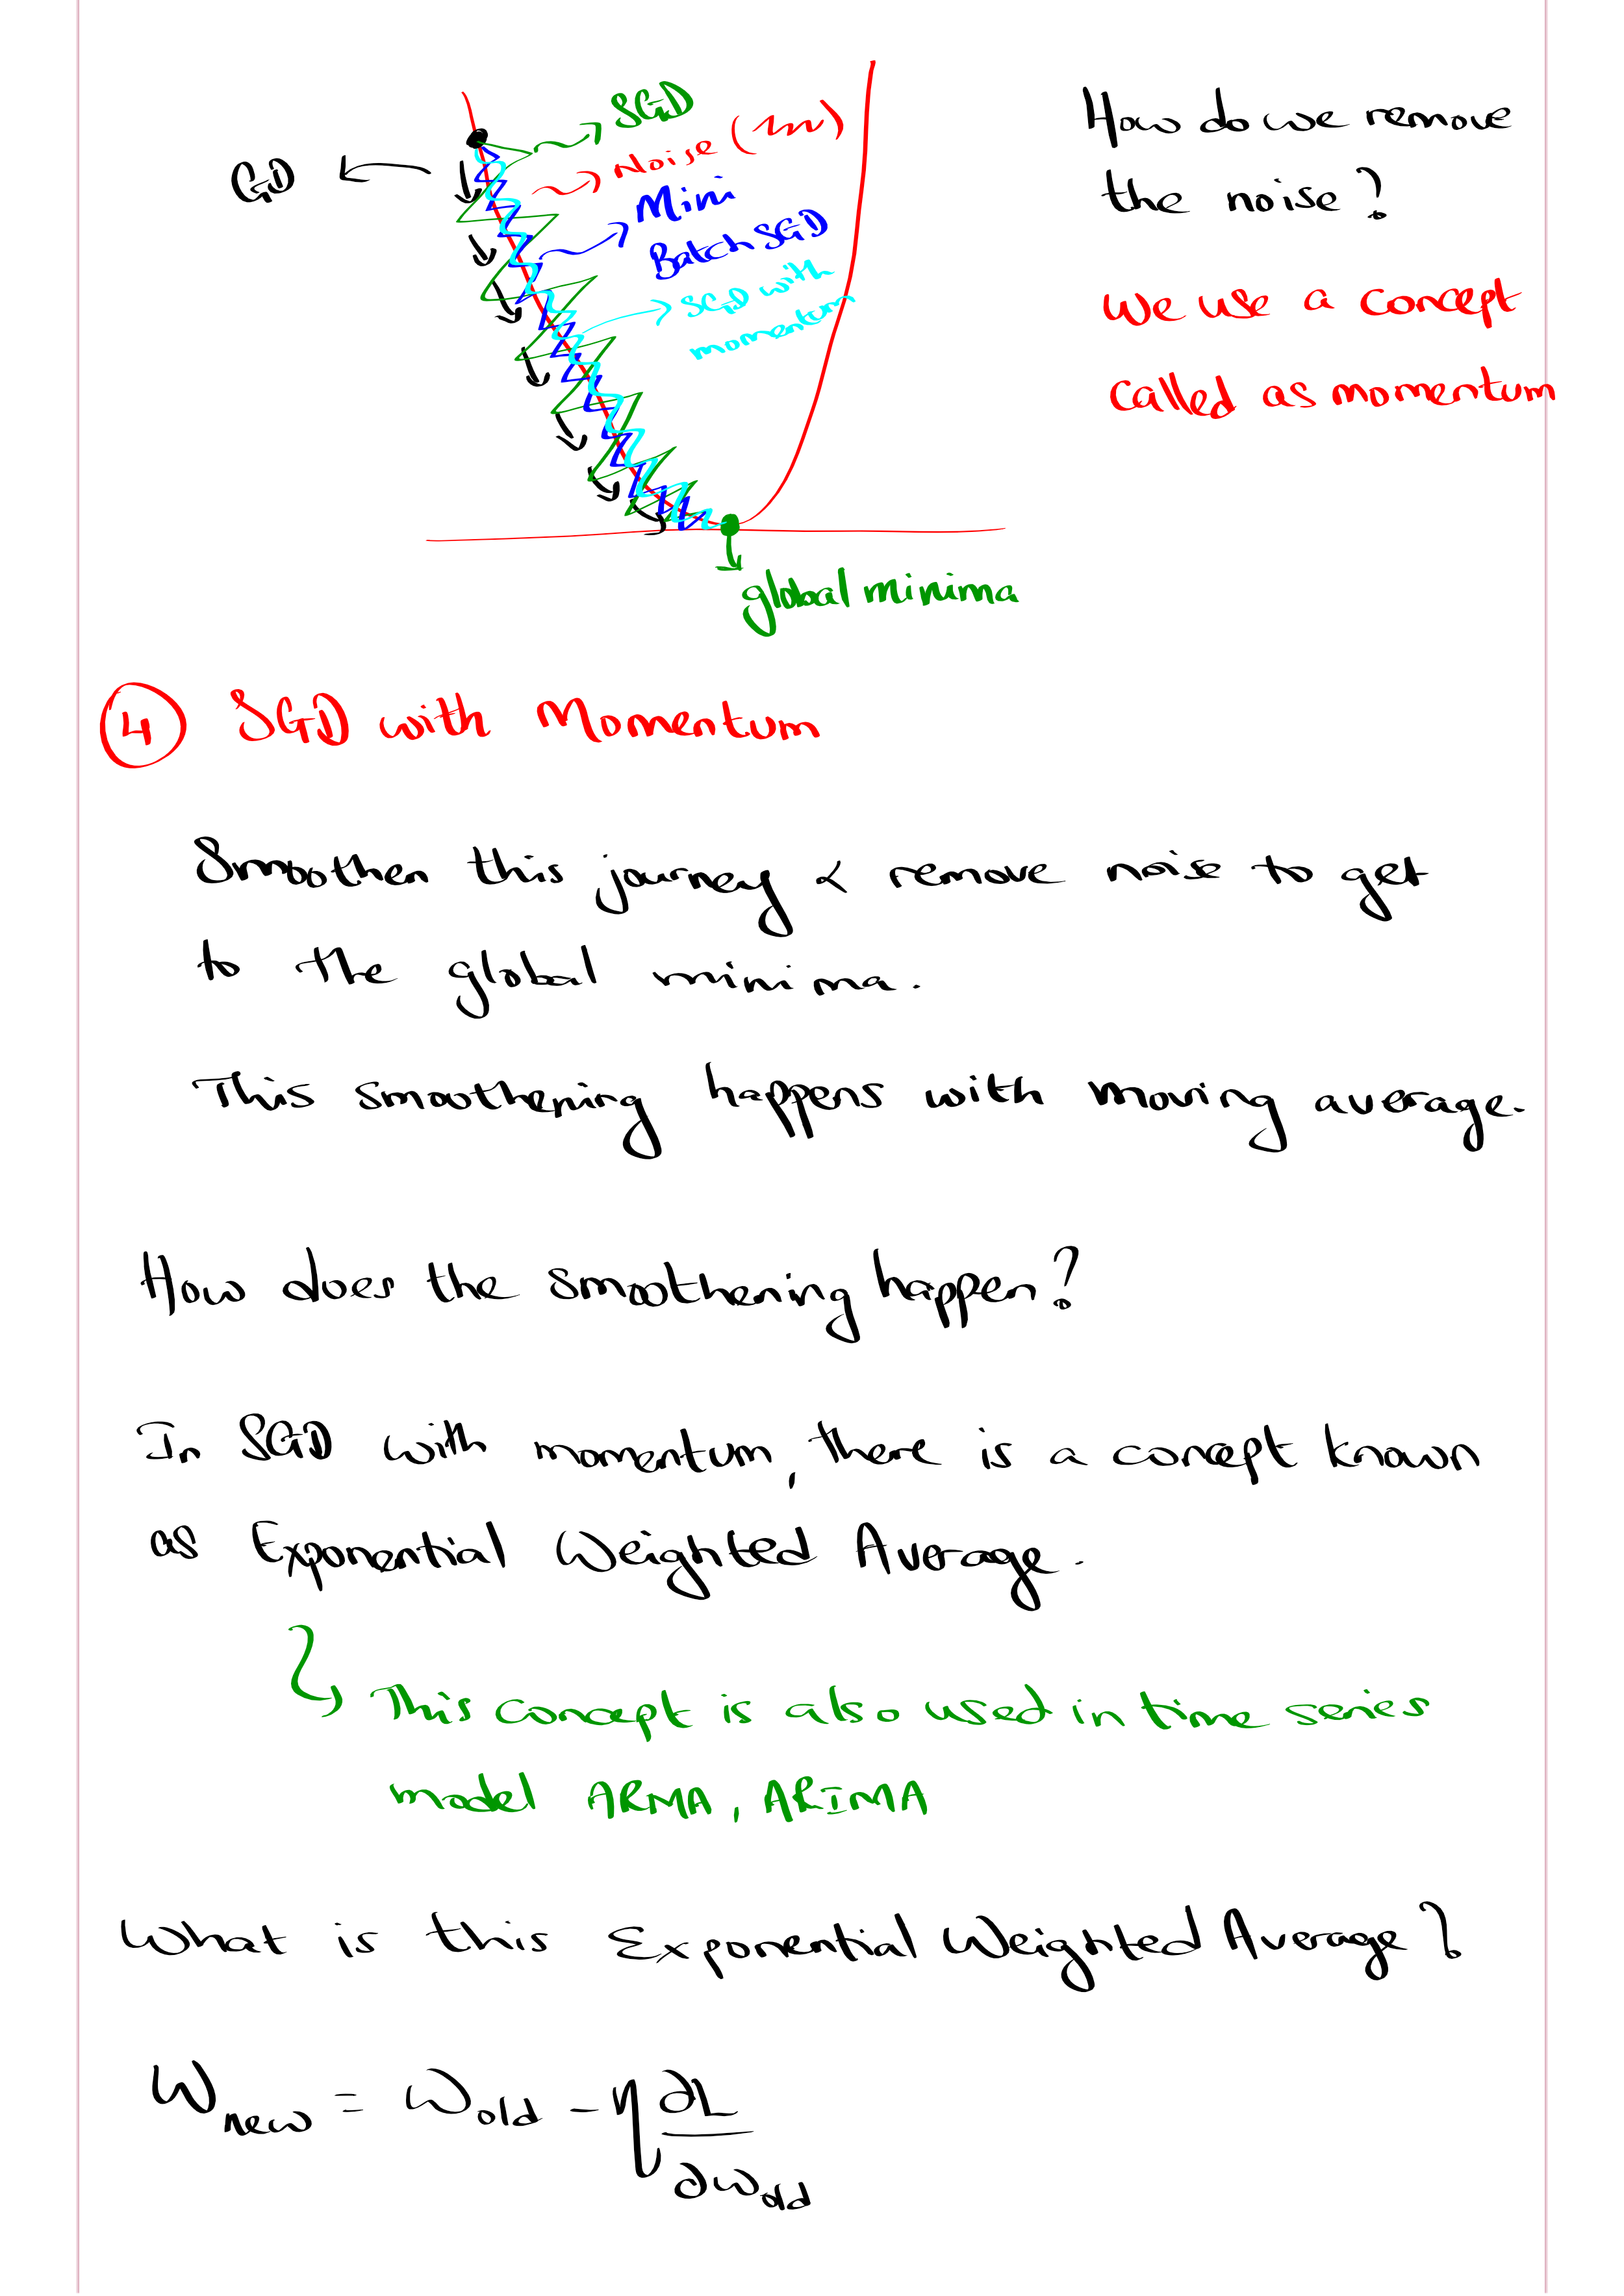 GD
SGD
Noise (
)
Mini
Batch SGD
SGD with
momentum
global minima
How do we remove
the noise?
We use a concept
called as momentum
4 SGD with Momentum
Smoothen this journey & remove noise to get
to the global minima.
This smoothening happens with moving average.
How does the smoothening happen?
In SGD with momentum, there is a concept known
as Exponential Weighted Average.
This concept is also used in time series
model ARMA, ARIMA
What is this Exponential Weighted Average?
W_new = W_old - η ∂L
∂w_old